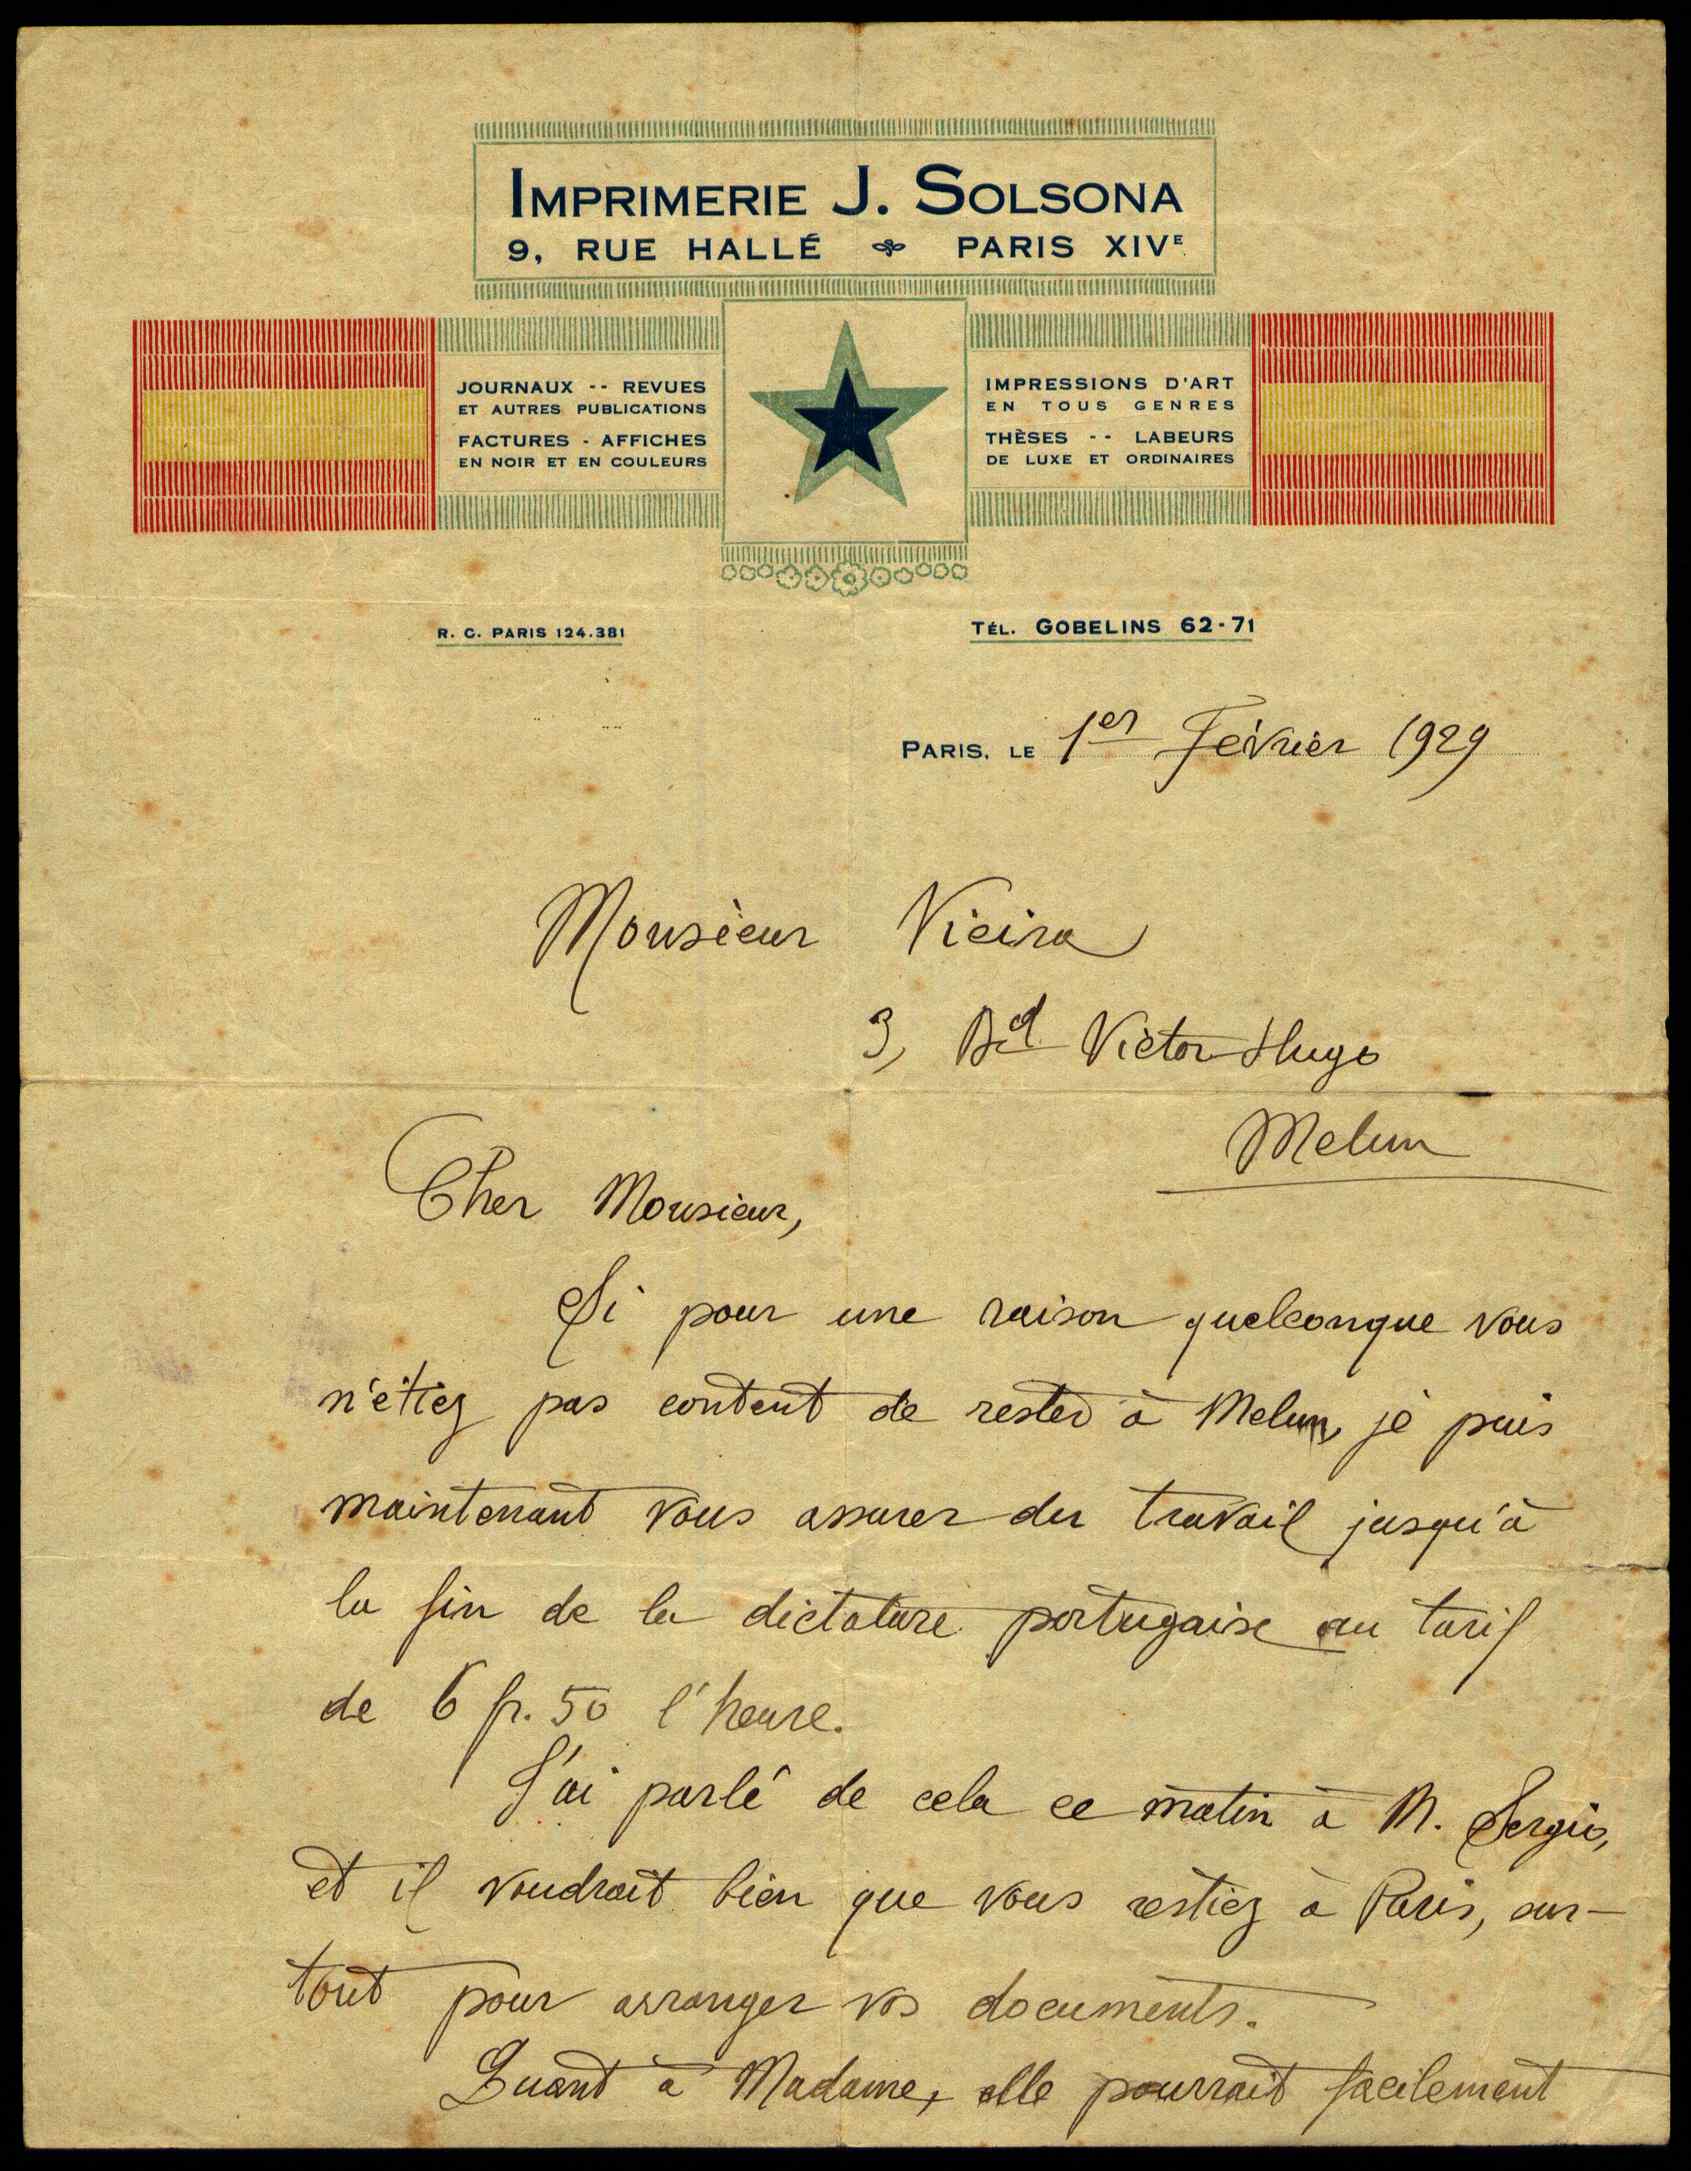 IMPRIMERIE J. SOLSONA
9, RUE HALLÉ PARIS XIVE
JOURNAUX -- REVUES
ET AUTRES PUBLICATIONS
FACTURES - AFFICHES
EN NOIR ET EN COULEURS
IMPRESSIONS D'ART
EN TOUS GENRES
THÈSES -- LABEURS
DE LUXE ET ORDINAIRES
R. C. PARIS 124.381
TÉL. GOBELINS 62-71
PARIS, LE 1er Février 1929
Monsieur Vieira
3, Bd Victor Hugo
Melun
Cher Monsieur,
Si pour une raison quelconque vous
n'étiez pas content de rester à Melun, je puis
maintenant vous assurer du travail jusqu'à
la fin de la dictature portugaise au tarif
de 6 fr. 50 l'heure.
J'ai parlé de cela ce matin à M. Sergio,
et il voudrait bien que vous restiez à Paris, sur-
tout pour arranger vos documents.
Quant à Madame, elle pourrait facilement